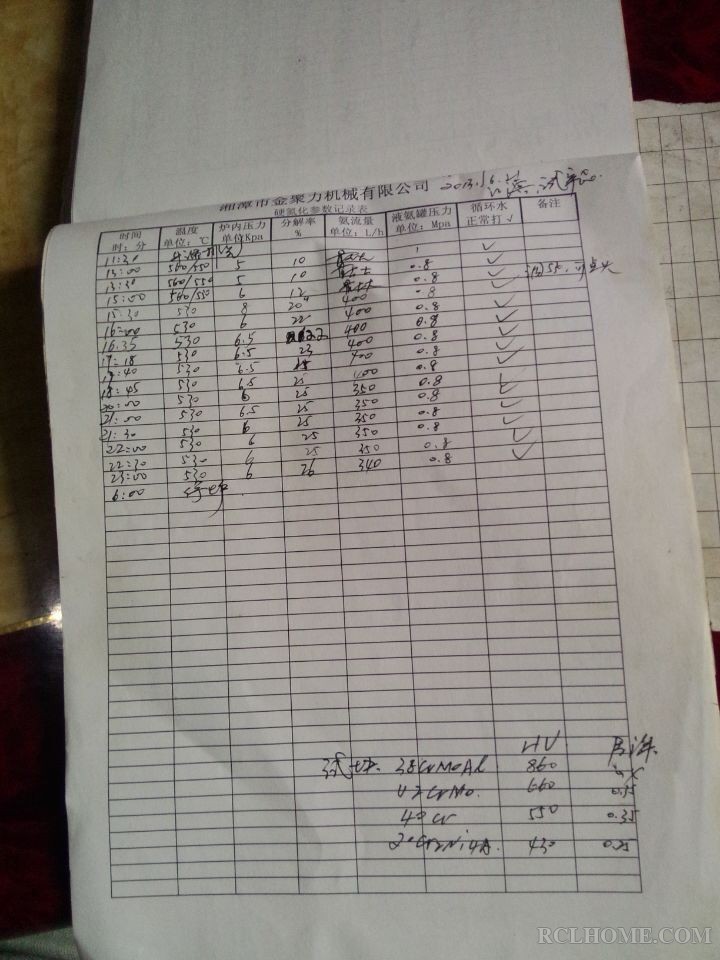 湘潭市金聚力机械有限公司 2013.
硬氮化参数记录表
时间 时：分 温度 单位：℃ 炉内压力 单位Kpa 分解率 % 氨流量 单位：L/h 液氨罐压力 单位：Mpa 循环水 正常打√ 备注
11:30 1 √
13:00 560/550 5 10 0.8 √
13:30 560/550 5 10 0.8 √
15:00 560/550 6 12 400 0.8 √
15:30 530 8 20 400 0.8 √
16:00 530 6 22 400 0.8 √
16:35 530 6.5 22 400 0.8 √
17:18 530 6.5 23 400 0.8 √
17:40 530 6.5 25 400 √
18:45 530 6.5 25 350 0.8 √
20:00 530 6 25 350 0.8 √
21:00 530 6.5 25 350 0.8 √
21:30 530 6 25 350 0.8 √
22:00 530 6 25 350 0.8 √
22:30 530 6 25 350 0.8 √
23:00 530 6 26 340 0.8 √
6:00 停炉
HV
试块 38CrMoAl 860
42CrMo. 660 0.35
40Cr 550 0.35
430 0.25
RCLHOME.COM